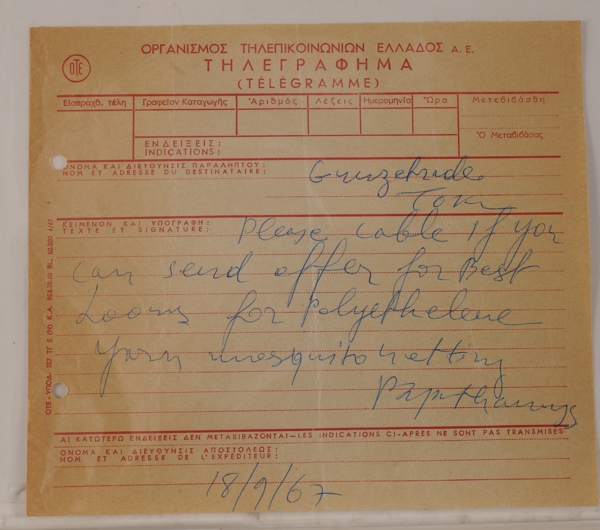 ΟΤΕ
ΟΡΓΑΝΙΣΜΟΣ ΤΗΛΕΠΙΚΟΙΝΩΝΙΩΝ ΕΛΛΑΔΟΣ Α. Ε.
ΤΗΛΕΓΡΑΦΗΜΑ
(TÉLÉGRAMME)
Εἰσπραχθ. τέλη Γραφεῖον Καταγωγῆς Ἀριθμὸς Λέξεις Ἡμερομηνία Ὥρα Μετεβιβάσθη
ΕΝΔΕΙΞΕΙΣ :
INDICATIONS :
Ὁ Μεταβιβάσας
ΟΝΟΜΑ ΚΑΙ ΔΙΕΥΘΥΝΣΙΣ ΠΑΡΑΛΗΠΤΟΥ :
NOM ET ADRESSE DU DESTINATAIRE :
ΚΕΙΜΕΝΟΝ ΚΑΙ ΥΠΟΓΡΑΦΗ :
TEXTE ET SIGNATURE :
Please cable if you
can send offer for Best
Looms for Polyethelene
Yarn mosquito netting
ΑΙ ΚΑΤΩΤΕΡΩ ΕΝΔΕΙΞΕΙΣ ΔΕΝ ΜΕΤΑΒΙΒΑΖΟΝΤΑΙ—LES INDICATIONS CI-APRÈS NE SONT PAS TRANSMISES
ΟΝΟΜΑ ΚΑΙ ΔΙΕΥΘΥΝΣΙΣ ΑΠΟΣΤΟΛΕΩΣ :
NOM ET ADRESSE DE L'EXPÉDITEUR :
18/9/67